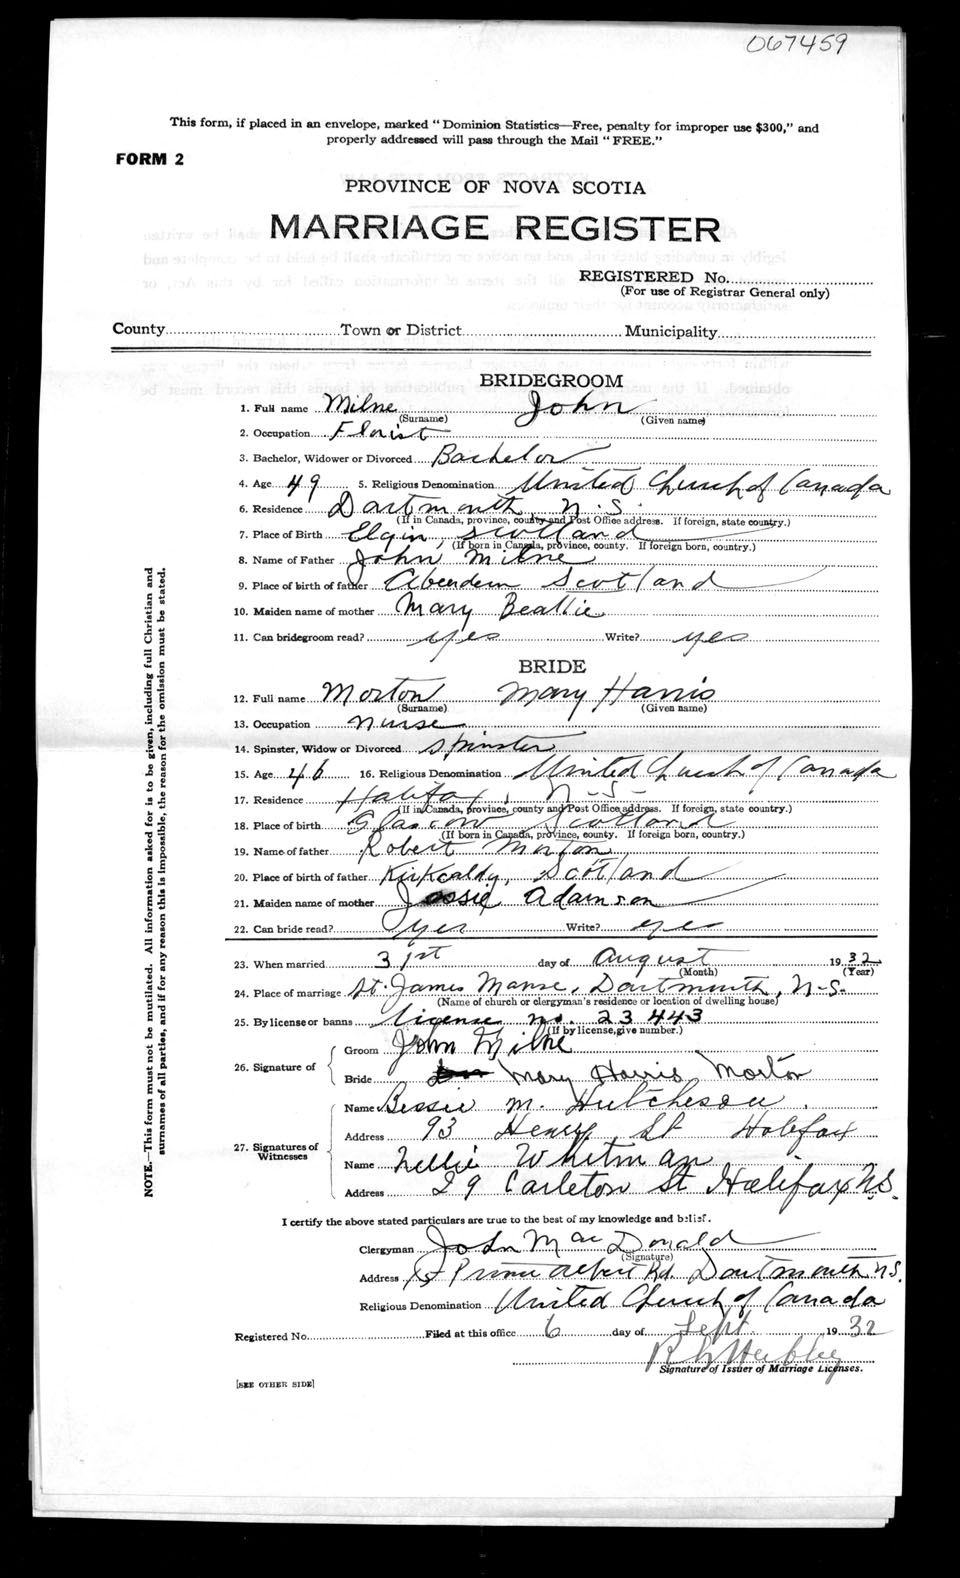 067459
This form, if placed in an envelope, marked "Dominion Statistics—Free, penalty for improper use $300," and
properly addressed will pass through the Mail "FREE."
FORM 2
PROVINCE OF NOVA SCOTIA
MARRIAGE REGISTER
REGISTERED No.
(For use of Registrar General only)
County Town or District Municipality
BRIDEGROOM
1. Full name Milne John
(Surname) (Given name)
2. Occupation Florist
3. Bachelor, Widower or Divorced Bachelor
4. Age 49 5. Religious Denomination United Church of Canada
6. Residence Dartmouth N.S.
(If in Canada, province, county and Post Office address. If foreign, state country.)
7. Place of Birth Elgin, Scotland
(If born in Canada, province, county. If foreign born, country.)
8. Name of Father John Milne
9. Place of birth of father Aberdeen Scotland
10. Maiden name of mother Mary Beattie
11. Can bridegroom read? yes Write? yes
BRIDE
12. Full name Morton Mary Harris
(Surname) (Given name)
13. Occupation nurse
14. Spinster, Widow or Divorced spinster
15. Age 46 16. Religious Denomination United Church of Canada
17. Residence Halifax, N.S.
(If in Canada, province, county and Post Office address. If foreign, state country.)
18. Place of birth Glascow Scotland
(If born in Canada, province, county. If foreign born, country.)
19. Name of father Robert Morton
20. Place of birth of father Kirkcaldy, Scotland
21. Maiden name of mother Jessie Adamson
22. Can bride read? yes Write? yes
23. When married 31st day of August 1932
(Month) (Year)
24. Place of marriage St. James Manse, Dartmouth, N.S.
(Name of church or clergyman's residence or location of dwelling house)
25. By license or banns license no. 23443
(If by license, give number.)
26. Signature of Groom John Milne
Bride Mary Harris Morton
27. Signatures of Witnesses
Name Bessie M. Hutcheson.
Address 93 Henry St Halifax
Name Nellie Whitman
Address 29 Carleton St Halifax N.S.
I certify the above stated particulars are true to the best of my knowledge and belief.
Clergyman John MacDonald
(Signature)
Address Prince Albert Rd. Dartmouth N.S.
Religious Denomination United Church of Canada
Registered No. Filed at this office 6 day of Sept. 1932
Signature of Issuer of Marriage Licenses.
[SEE OTHER SIDE]
NOTE.—This form must not be mutilated. All information asked for is to be given, including full Christian and
surnames of all parties, and if for any reason this is impossible, the reason for the omission must be stated.